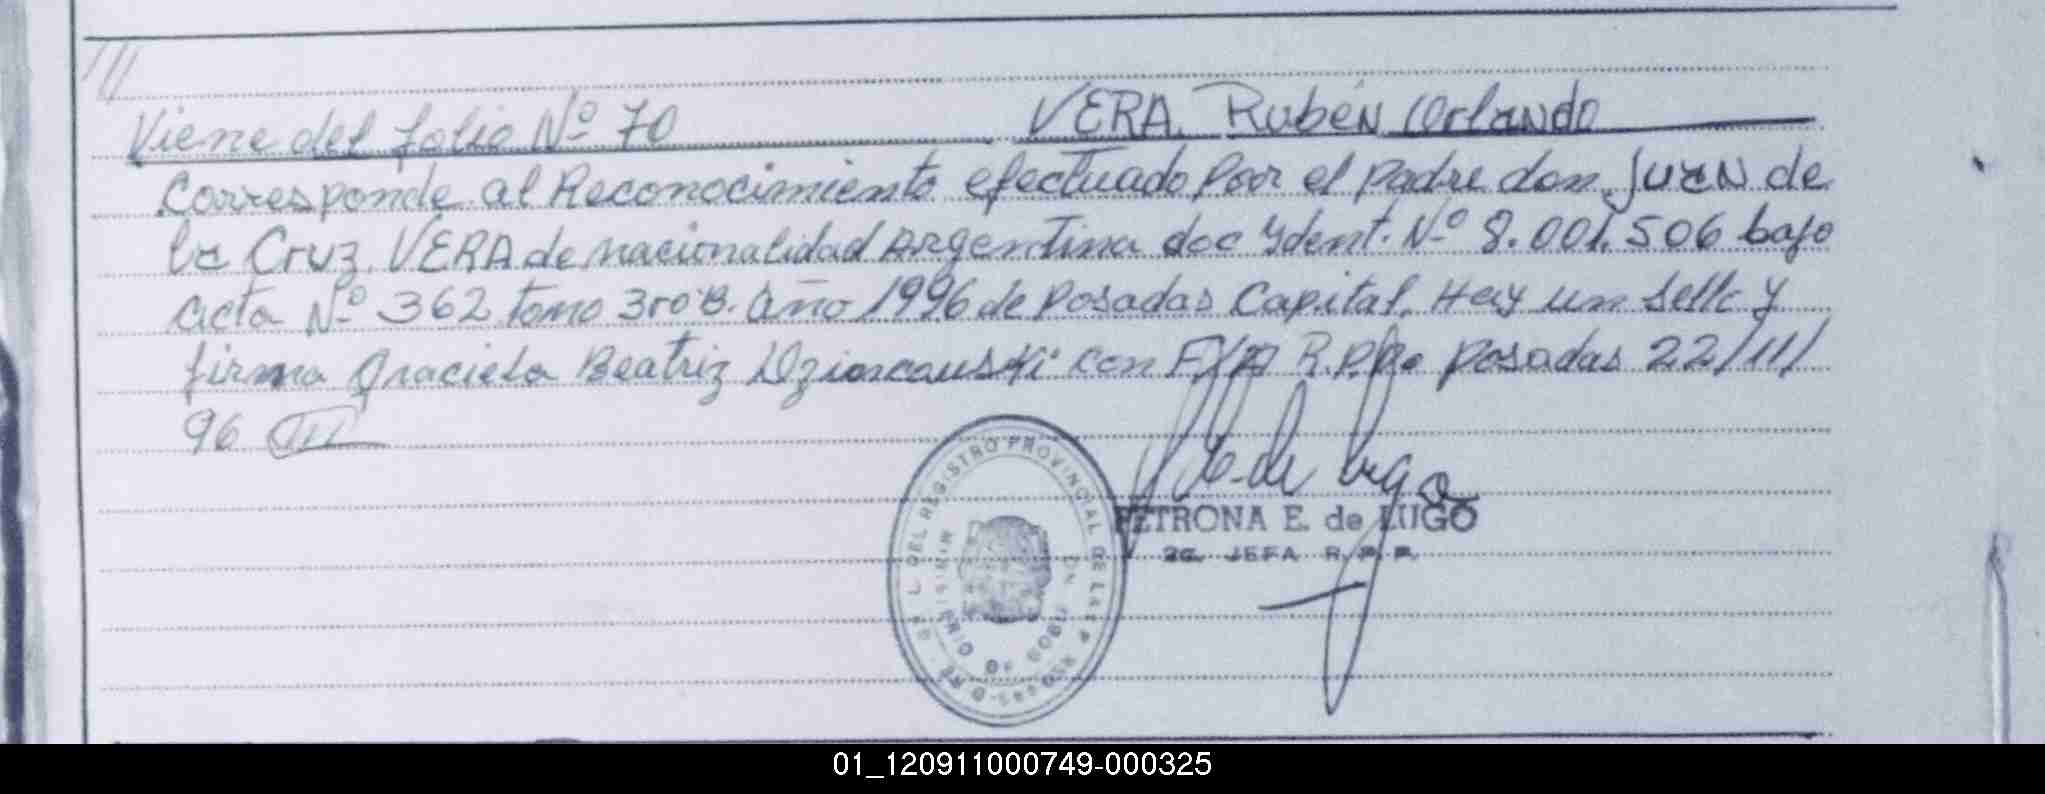 Viene del folio Nº 70 VERA, Rubén Orlando
Corresponde al Reconocimiento efectuado por el padre don Juan de
la Cruz VERA de nacionalidad Argentina doc Ydent. Nº 8.001.506 bajo
acta Nº 362 tomo 3roB. año 1996 de Posadas Capital. Hay un sello y
firma Graciela Beatriz con R.P.P. Posadas 22/11/
96
DEL REGISTRO PROVINCIAL DE LAS P
PETRONA E. de LUGO
JEFA R.P.P.
01_120911000749-000325